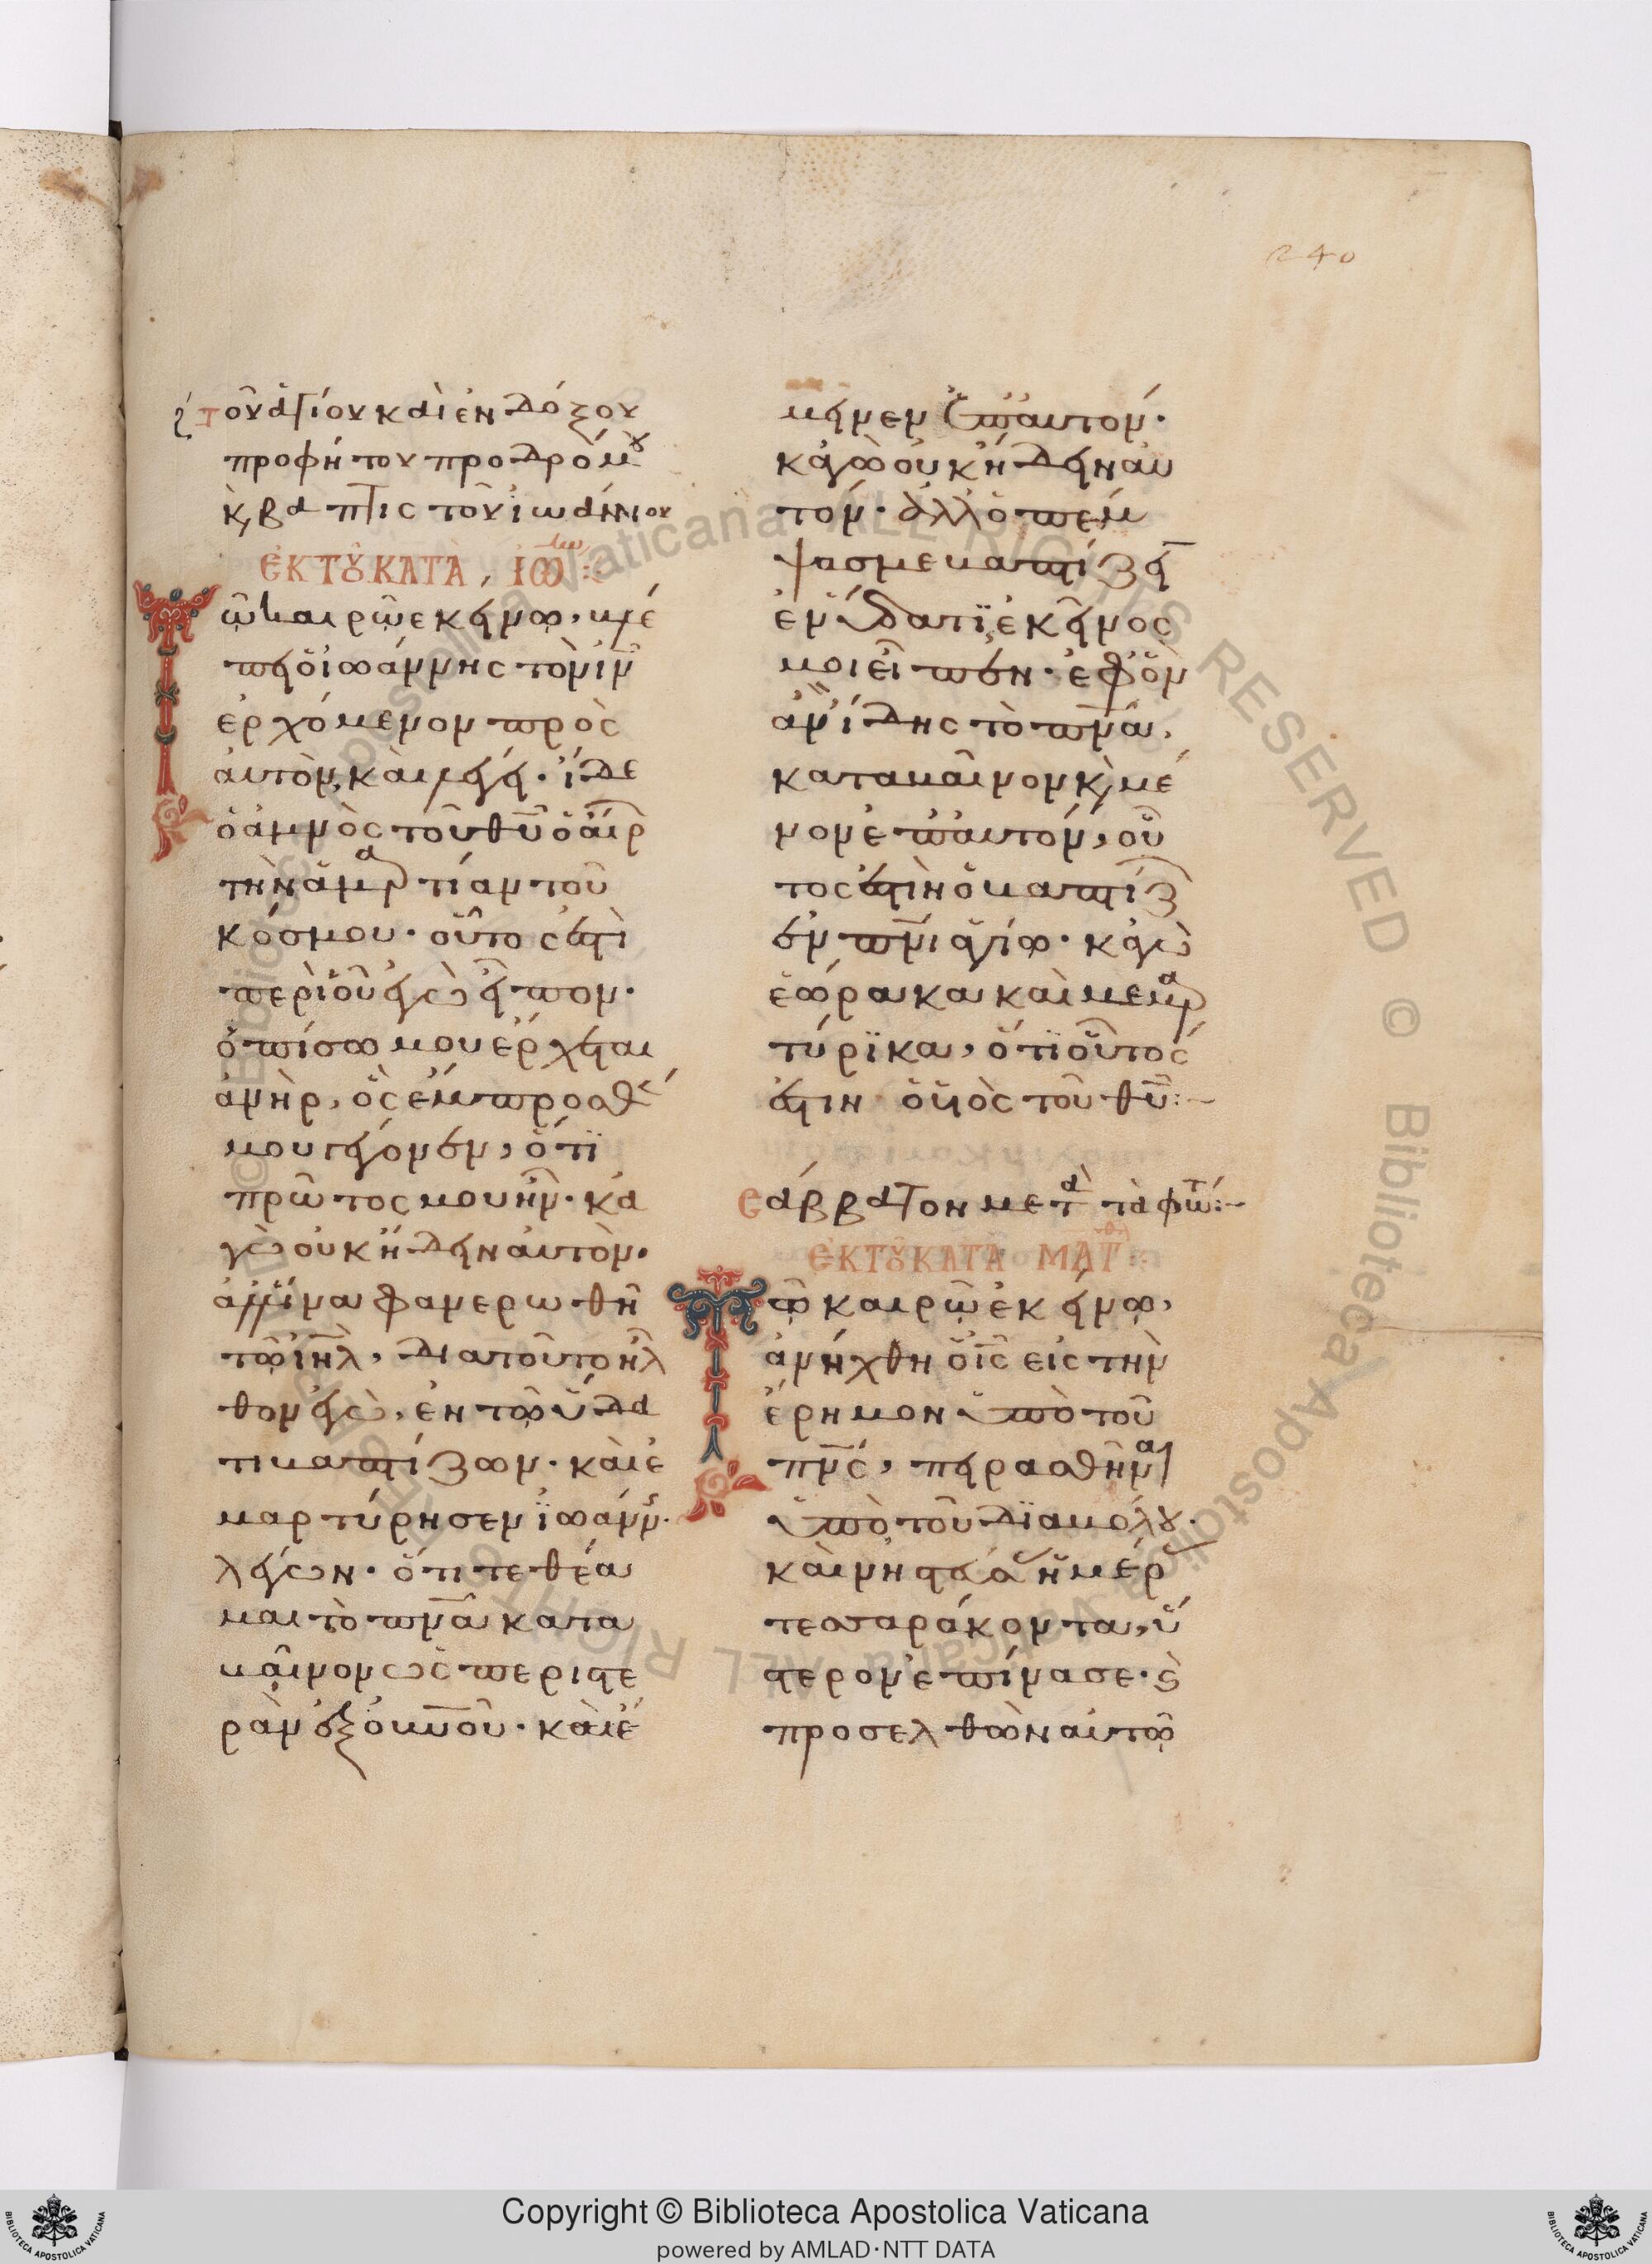 240
ζ τοῦ ἁγίου καὶ ἐνδόξου
προφήτου προδρόμου
κ, βαπτιστοῦ ἰωάννου
ἐκ τοῦ κατὰ, ἰω
Τῶ καιρῶ ἐκείνω, βλέ
πει ὁ ἰωάννης τὸν ιν
ἐρχόμενον πρὸς
αὐτὸν, καὶ λέγει. ἴδε
ὁ ἀμνὸς τοῦ θυ ὁ αἴρ
τὴν ἁμαρτίαν τοῦ
κόσμου. οὗτος ἐστὶ
περὶ οὗ ἐγὼ εἶπον.
ὀπίσω μου ἔρχεται
ἀνὴρ, ὃς ἔμπροσθέ
μου γέγονεν, ὅτι
πρῶτος μου ἦν. κἀ
γὼ οὐκ ᾔδειν αὐτὸν.
ἀλλ' ἵνα φανερωθῆ
τῶ ιηλ, διατοῦτο ἦλ
θον ἐγὼ, ἐν τῶ ὕδα
τι βαπτίζων. καὶ ἐ
μαρτύρησεν ἰωάνν.
λέγων. ὅτι τεθέα
μαι τὸ πνα κατα
βαῖνον ὡς περιστε
ρὰν ἐξ ουνου. καὶ ἔ
μεινεν ἐπ' αὐτόν.
κἀγὼ οὐκ ᾔδειν αὐ
τόν. ἀλλ' ὁ πέμ
ψας με βαπτίζειν
ἐν ὕδατι ἐκεῖνος
μοι εἶπεν. ἐφ' ὃν
ἂν ἴδης τὸ πνα,
καταβαῖνον κ, μέ
νον ἐπ' αὐτόν, οὗ
τος ἐστὶν ὁ βαπτίζ
ἐν πνι ἁγίω. κἀγὼ
ἑώρακα καὶ μεμαρ
τύρικα, ὅτι οὗτός
ἐστιν ὁ υἱὸς τοῦ θυ:~
Σάββατον μετὰ τὰ φῶτ:~
ἐκ τοῦ κατὰ ΜΑΤΘ
Τῶ καιρῶ ἐκείνω,
ἀνήχθη ὁ ις εἰς τὴν
ἔρημον ὑπὸ τοῦ
πνς, πειρασθῆναι
ὑπὸ τοῦ διαβόλου.
καὶ νηστεύσας ἡμέρ
τεσσαράκοντα, ὕ
στερον ἐπείνασε. κ
προσελθὼν αὐτῶ
Copyright © Biblioteca Apostolica Vaticana
powered by AMLAD·NTT DATA